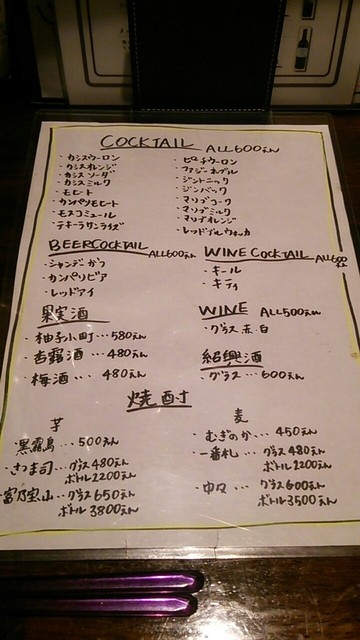 COCKTAIL ALL600えん
・カシスウーロン
・カシスオレンジ
・カシスソーダ
・カシスミルク
・モヒート
・カンパリモヒート
・モスコミュール
・テキーラサンライズ
・ピーチウーロン
・ファジーネーブル
・ジントニック
・ジンバック
・マリブコーク
・マリブミルク
・マリブオレンジ
・レッドブルウォッカ
BEERCOCKTAIL ALL600えん
・シャンデ
・カンパリビア
・レッドアイ
WINE COCKTAIL ALL600えん
・キール
・キティ
果実酒
・柚子小町…580えん
・杏露酒…480えん
・梅酒…480えん
WINE ALL500えん
・グラス 赤・白
紹興酒
・グラス…600えん
焼酎
芋
・黒霧島…500えん
・さつま司…グラス480えん
ボトル2200えん
・富乃宝山…グラス650えん
ボトル3800えん
麦
・むぎのか…450えん
・一番札…グラス480えん
ボトル2200えん
・中々…グラス600えん
ボトル3500えん